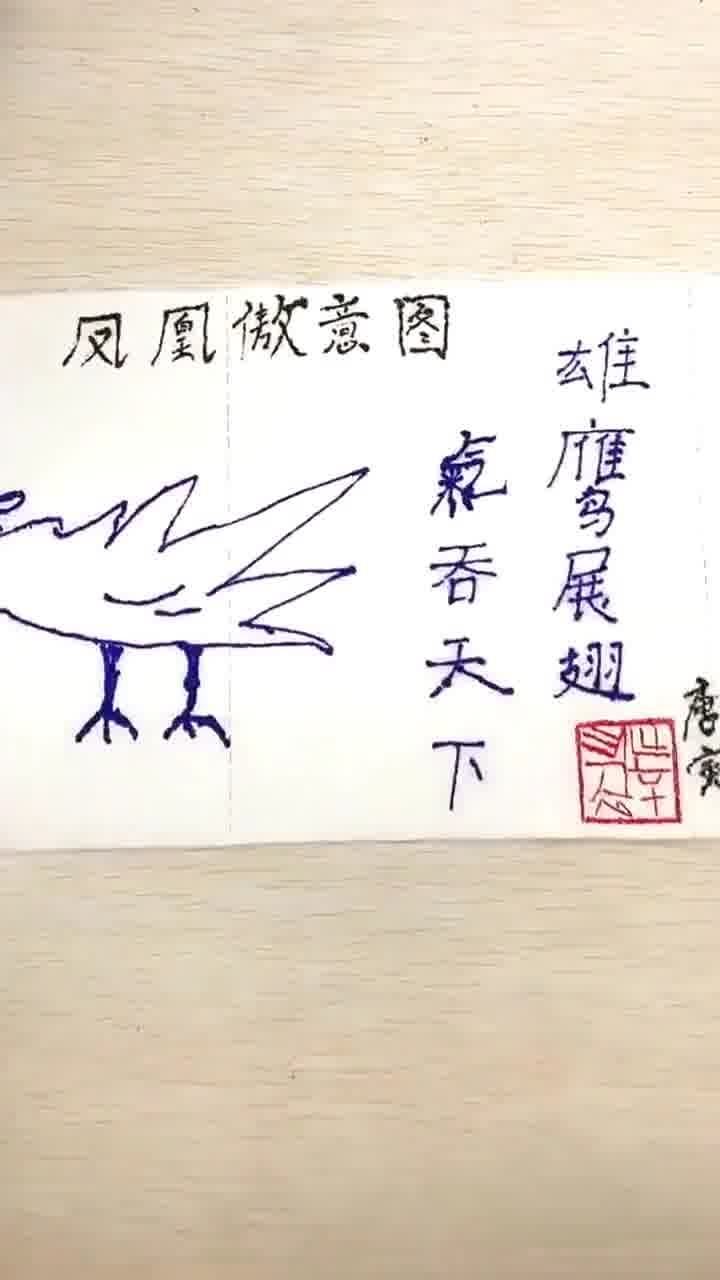 凤凰傲意图
雄鹰展翅
氣吞天下
唐寅